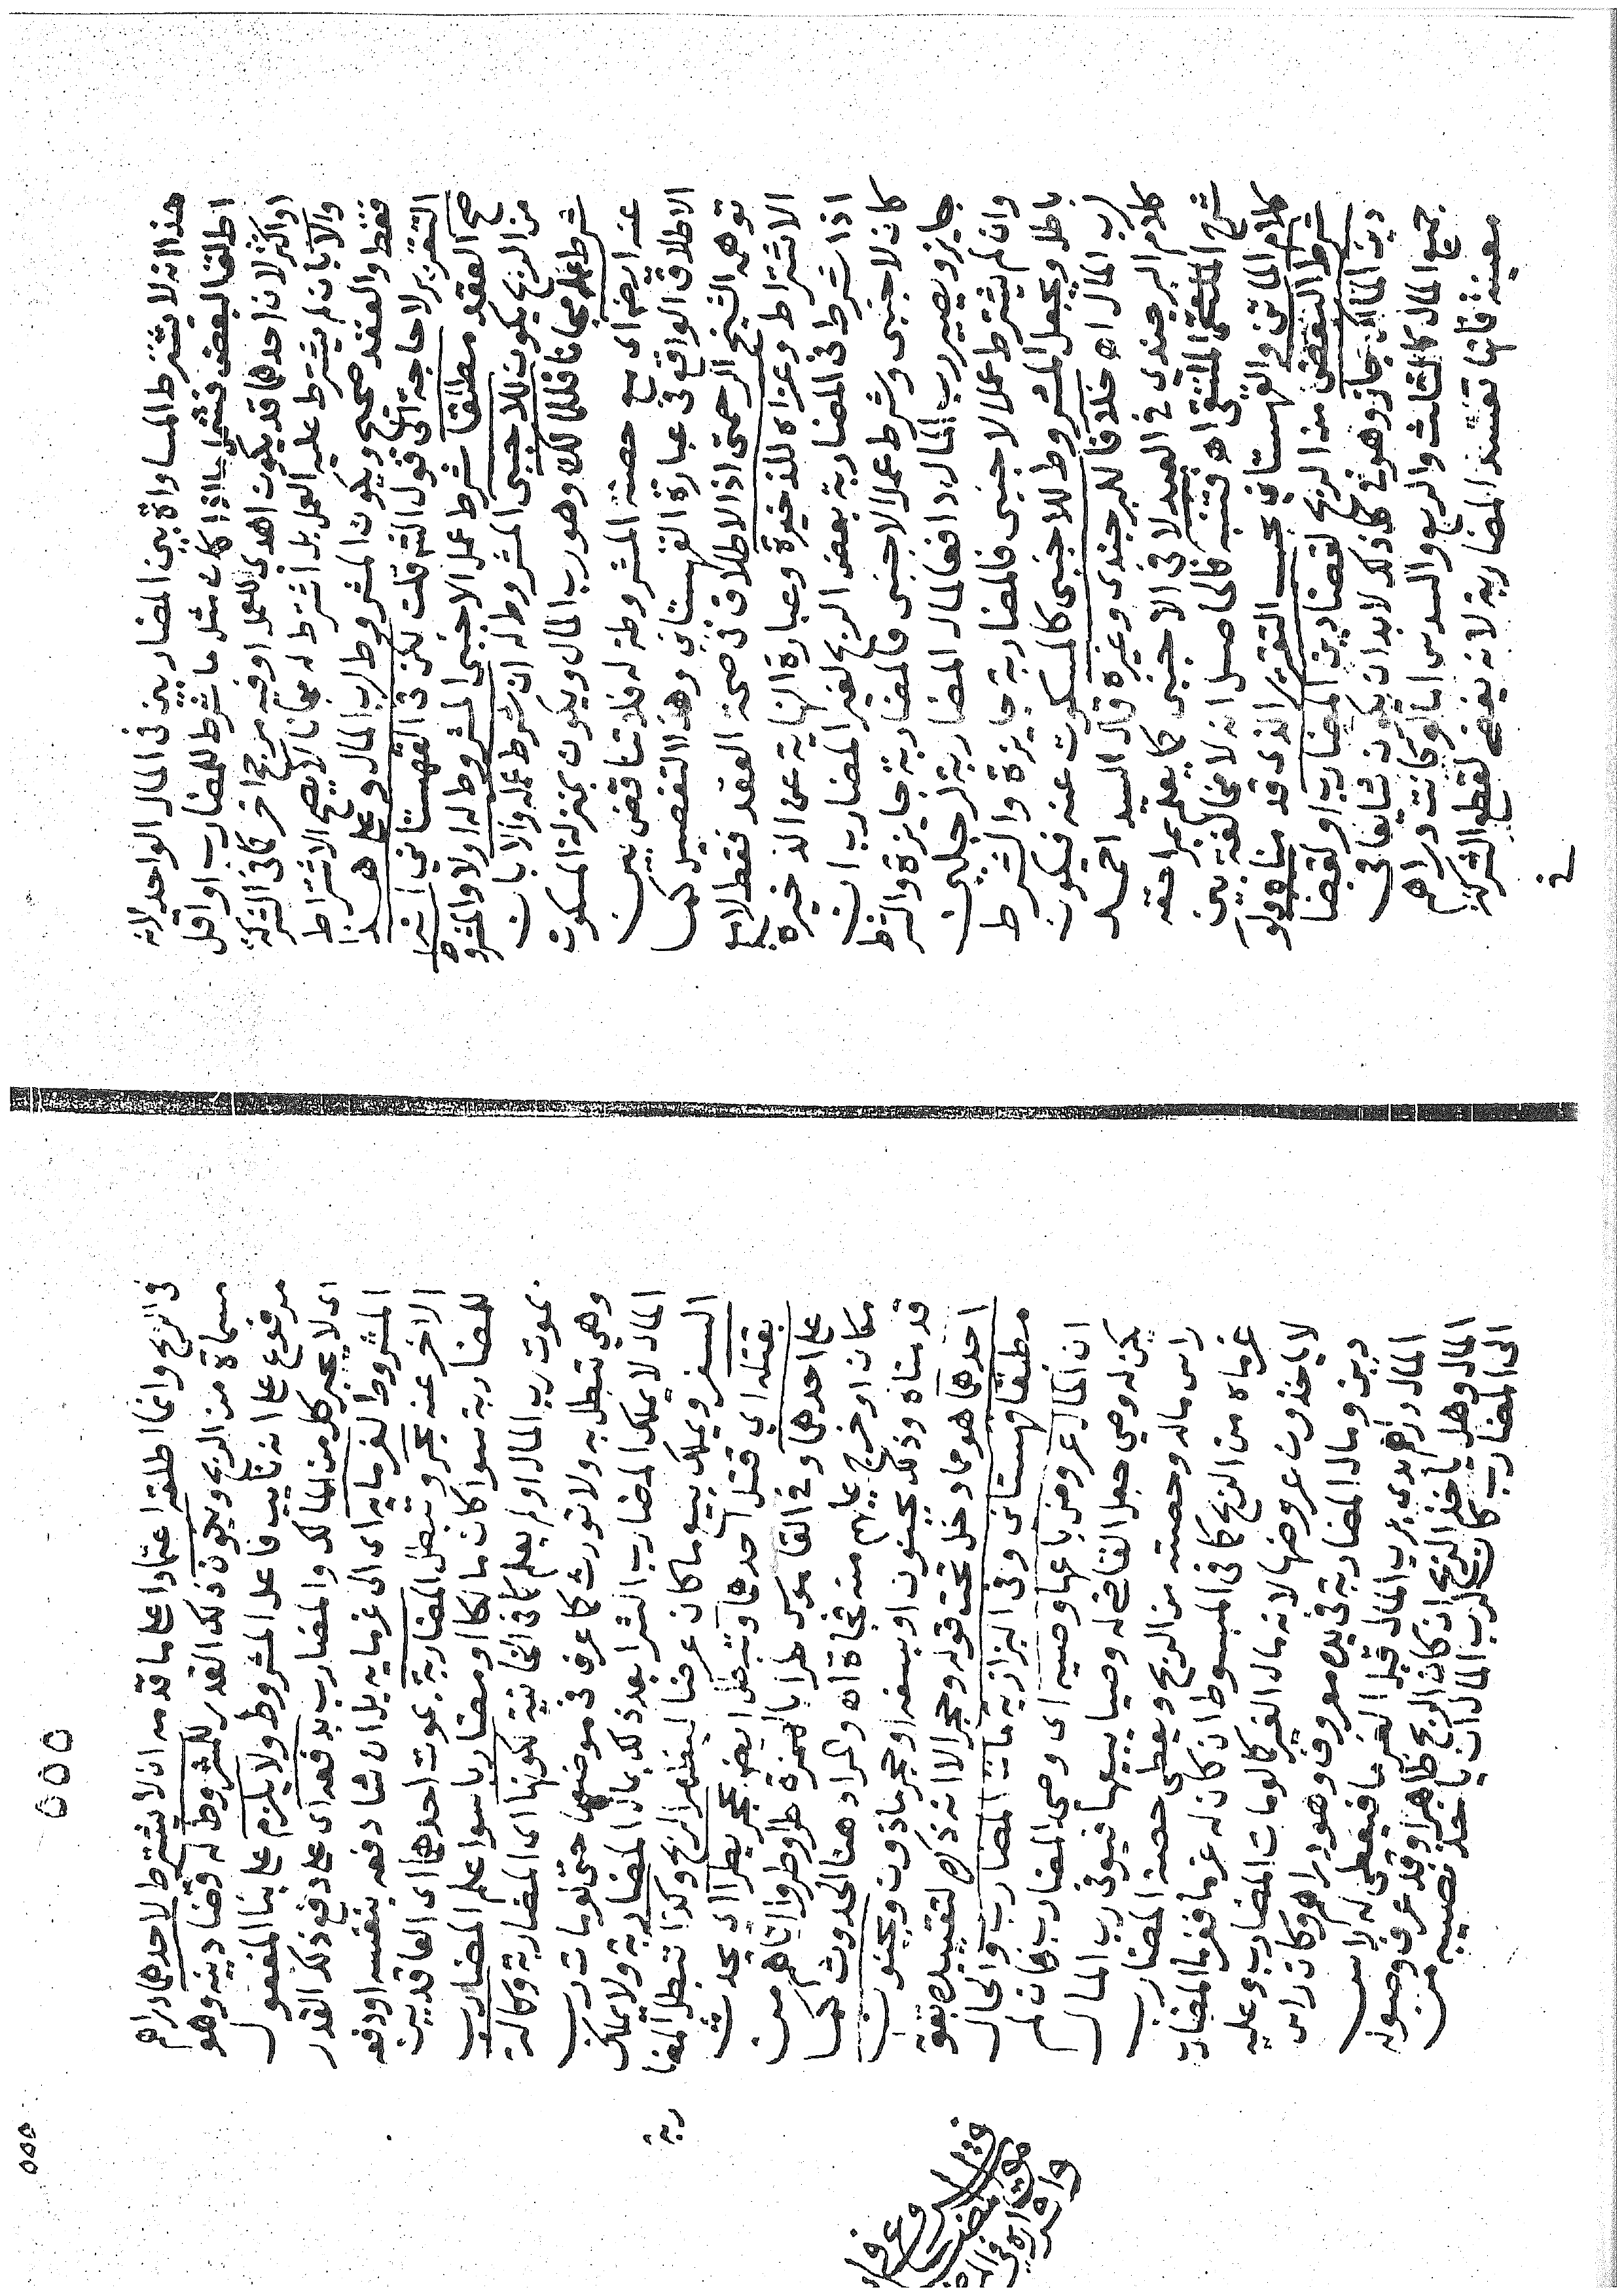 هذا انه لا يشترط المساواة بين المضاربين في المال الواحد لانه
اطلقا لبعض فشمل ما اذا كان مثل ما شرط للمضارب او اقل
او اكثر لان احدهما قد يكون اهدى للعمل او فيه مرجح اخر كما في الشركة
والا بان لم يشترط عليه العمل بل اشترط له مجانا لا يصح الاشتراط
فقط والعقد صحيح ويكون المشروط لرب المال وعلى هذا
التقرير لا حاجة الى قول الشم قلت لكن في القهستاني انه
صح العقد مطلقا شرط عمل الاجنبي المشروط له اولا والمشروط
من الربح يكون للاجنبي المشروط له ان شرط عمله والا بان
شرط له مجانا فللمالك وهو رب المال ويكون بمنزلة المسكوت
عنه ايضا اي مع حصته المشروطة له فلا تناقض بين
الاطلاق الواقع في عبارة القهستاني وهذا التفصيل كما
توهمه الشيخ الرحمتي اذ الاطلاق في صحة العقد فقط لا في
الاشتراط وعزاه للذخيرة وعبارة النهاية عن الذخيرة
اذا شرط في المضاربة بعض الربح لغير المضارب ان
كان لاجنبي وشرط عمل الاجنبي فالمضاربة جايزة والشرط
جايز ويصير رب المال دافعا لمال المضاربة لرجلين
وان لم يشترط عمل الاجنبي فالمضاربة جايزة والشرط
باطل ويجعل المشروط للاجنبي كالمسكوت عنه فيكون
لرب المال اه خلافا للبرجندي وغيره قال السيد احمد
كلام البرجندي في العبد لا في الاجنبي كما يعلم بمراجعة
شرح الملتقى المنتقى اه فتنبه فالحاصل انه لا مخالفة بين
كلام الماتن والقهستاني بحسب التقرير الذي قدمناه ولو
شرط البعض من الربح لقضا دين المضارب او لقضا
دين المالك جاز وهو في كل ذلك لا بد ان يكون شايعا في
جميع المال كالثلث والربع والسدس اما لو كانت دراهم
معينة فانها تفسد المضاربة لانه يفضي لقطع الشركة
في
في الربح وانما اطلقه اعتمادا على ما قدمه انه لا يشترط لاحدهما دراهم
مسماة من الربح ويكون ذلك القدر للمشروط له وقضا دينه وهو
مرفوع على انه نايب فاعل المشروط ولا يلزم على بنا المفعول
اي لا يجبر كل من المالك والمضارب بدفعه اي على دفع ذلك القدر
المشروط لغرمايه اي الى غرمايه بل ان شا دفعه بنفسه او دفعه
الاخر عنه وتبطل المضاربة بموت احدهما اي العاقدين
للمضاربة سوا كان مالكا او مضاربا سوا علم المضارب
بموت رب المال او لم يعلم كما في الخانية لكونها اي المضاربة وكالة
وهي تبطل به ولا تورث كما عرف في موضعها حتى لو مات رب
المال لا يملك المضارب الشرا بعد ذلك بمال المضاربة ولا يملك
السفر ويملك بيع ما كان عرضا ليظهر الربح وكذا تبطل المضا
ربة
بقتله اي قتل احدهما وتبطل ايضا بحجر يطرأ اي يحدث
على احدهما وفي القاموس طرا بالهمزة طراوطروا اتاهم من
مكان او خرج عليهم منه فجاة اه والمراد هنا الحدوث كما
قدمناه وذلك بجنون او بسفه او حجر ماذون وبجنون
احدهما هو مما دخل تحت قوله وحجر الا انه ذكره لتقييده بقوله
مطبقا قهستاني وفي البزازية مات المضارب والحال
ان المال عروض باعها وصيه اي وصي المضارب فان لم
يكن له وصي جعل القاضي له وصيا يبيعها فيوفي رب المال
راس ماله وحصته من الربح ويعطي حصة المضارب
غرماه من الربح كما في المبسوط ان كان له غرما فغرما المضارب
لا ياخذون عروضها لانه مال الغير كما لو مات المضارب وعليه
دين ومال المضاربة في يده معروف وهو دراهم وكان راس
المال دراهم بدي برب المال قبل الغرما فيعطي له راس
المال وهل ياخذ الربح ان كان الربح ظاهرا وقد عرف وصوله
الى المضارب كان لرب المال ان ياخذ نصيبه من